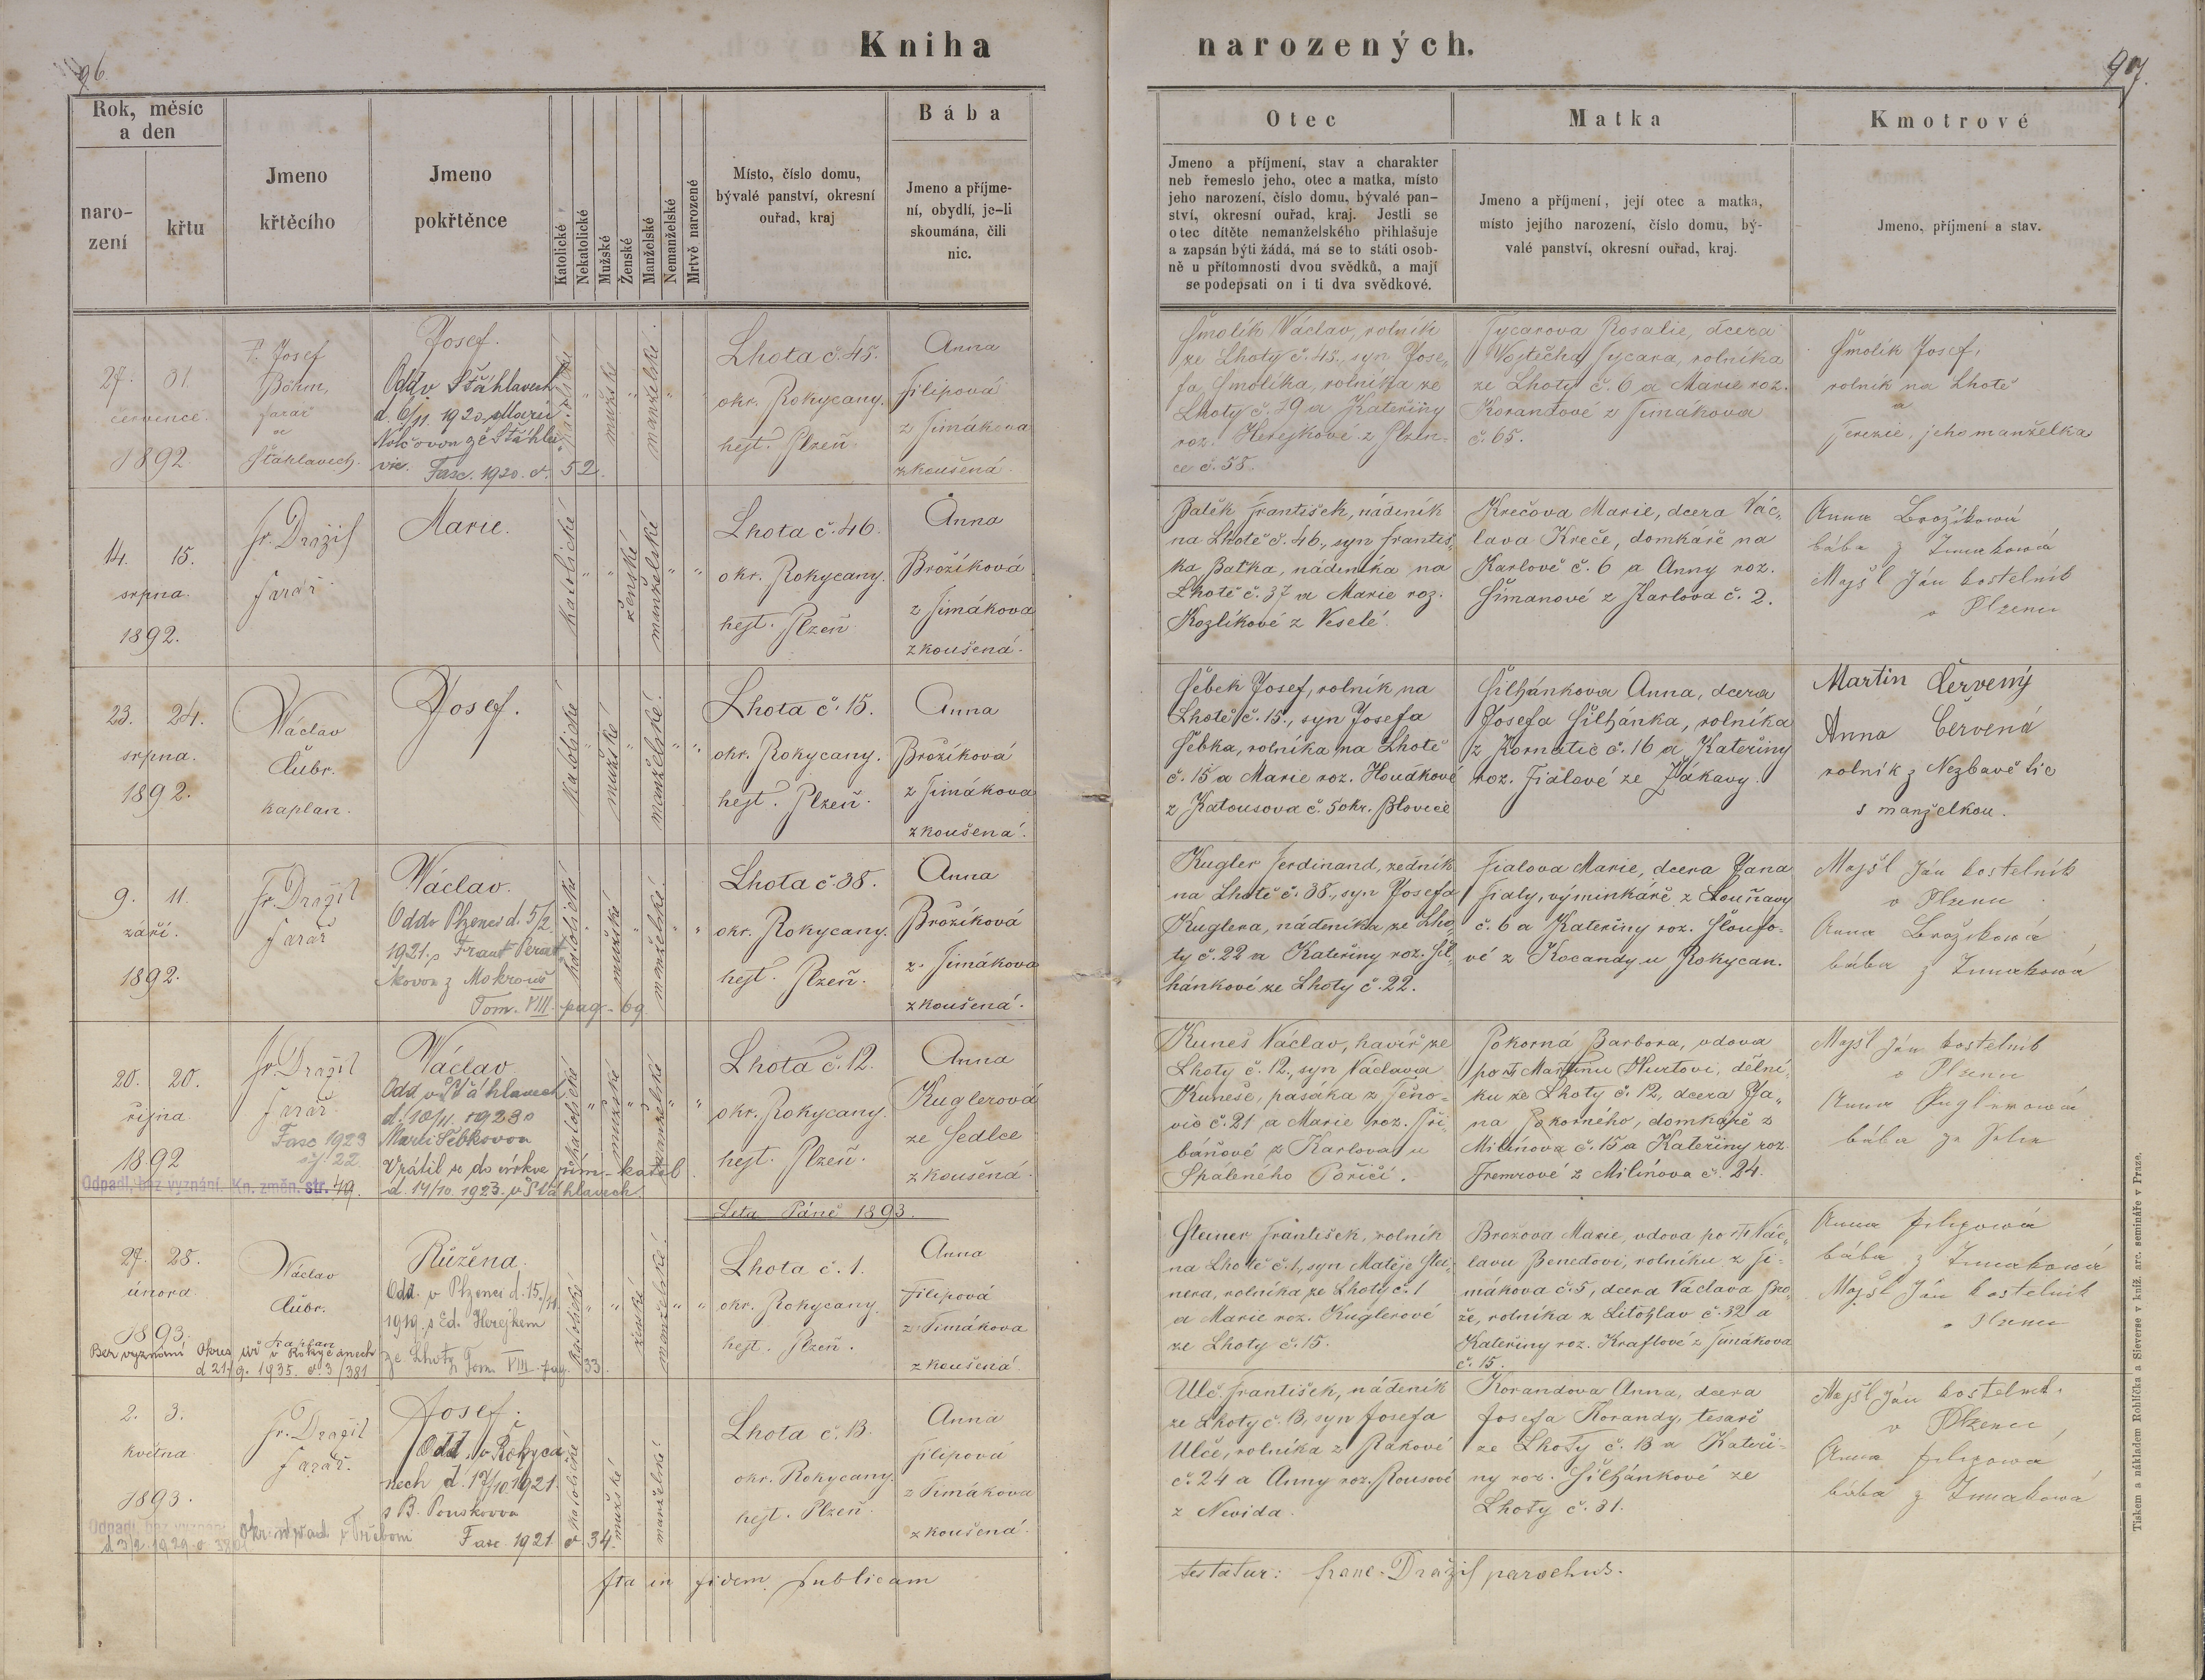 Kniha narozených.
96.
97.
Rok, měsíc a den
narození
křtu
Jmeno křtěcího
Jmeno pokřtěnce
Katolické
Nekatolické
Mužské
Ženské
Manželské
Nemanželské
Mrtvě narozené
Místo, číslo domu,
bývalé panství, okresní
ouřad, kraj
Bába
Jmeno a příjme-
ní, obydlí, je-li
skoumána, čili
nic.
Otec
Jmeno a příjmení, stav a charakter
neb řemeslo jeho, otec a matka, místo
jeho narození, číslo domu, bývalé pan-
ství, okresní ouřad, kraj. Jestli se
otec dítěte nemanželského přihlašuje
a zapsán býti žádá, má se to státi osob-
ně u přítomnosti dvou svědků, a mají
se podepsati on i ti dva svědkové.
Matka
Jmeno a příjmení, její otec a matka,
místo jejího narození, číslo domu, bý-
valé panství, okresní ouřad, kraj.
Kmotrové
Jmeno, příjmení a stav.
27. 31.
července
1892
P. Josef
Böhm,
farář
ve
Šťáhlavech.
Josef.
Odd. v Šťáhlavech
d. 6/11 1920 s Marií
ze Šťáhla-
vic. Fasc. 1920. č. 52.
katolické
mužské
manželské.
Lhota č. 45.
okr. Rokycany.
hejt. Plzeň.
Anna
Filipová
z Timákova
zkoušená.
Šmolík Václav, rolník
ze Lhoty č. 45., syn Jose-
fa Šmolíka, rolníka ze
Lhoty č. 19 a Kateřiny
roz. Herejkové z Plzen-
ce č. 58.
Tycarova Rosalie, dcera
Vojtěcha Tycara, rolníka
ze Lhoty č. 6 a Marie roz.
Korandové z Timákova
č. 65.
Šmolík Josef,
rolník na Lhotě
a
Terezie, jeho manželka
14. 15.
srpna.
1892.
Fr. Dražil
farář
Marie.
katolické
ženské
manželské
Lhota č. 46.
okr. Rokycany.
hejt. Plzeň
Anna
Brožíková
z Timákova
zkoušená.
Baťěk František, nádeník
na Lhotě č. 46., syn Františ-
ka Baťka, nádeníka na
Lhotě č. 37 a Marie roz.
Kozlíkové z Veselé.
Krečova Marie, dcera Vác-
lava Kreče, domkáře na
Karlově č. 6 a Anny roz.
Šimanové z Karlova č. 2.
Anna Brožíková
bába z Timakowá
Majšl Ján kostelník
v Plzenci
23. 24.
srpna.
1892.
Václav
Čubr.
kaplan.
Josef.
katolické
mužské
manželské
Lhota č. 15.
okr. Rokycany.
hejt. Plzeň.
Anna
Brožíková
z Timákova
zkoušená.
Šebek Josef, rolník na
Lhotě č. 15., syn Josefa
Šebka, rolníka na Lhotě
č. 15 a Marie roz. Houdkové
z Katousova č. 5 okr. Blovice
Šilhánkova Anna, dcera
Josefa Šilhánka, rolníka
z Kornatic č. 16 a Kateřiny
roz. Fialové ze Žákavy.
Martin Červený
Anna Červená
rolník z Nezbavětic
s manželkou.
9. 11.
září.
1892.
Fr. Dražil
farář
Václav.
Odd v Plzenci d. 5/2
1921. s Frant.
z Mokrouš
Tom. VIII. pag. 69
katolické
mužské
manželské.
Lhota č. 38.
okr. Rokycany.
hejt. Plzeň.
Anna
Brožíková
z Timákova
zkoušená.
Kugler Ferdinand, zedník
na Lhotě č. 38., syn Josefa
Kuglera, nádeníka ze Lho-
ty č. 22 a Kateřiny roz. Šil-
hánkové ze Lhoty č. 22.
Fialova Marie, dcera Jana
Fialy, výminkáře z Louňavy
č. 6 a Kateřiny roz. Sloufo-
vé z Kocandy u Rokycan.
Majšl Ján kostelník
v Plzenci
Anna Brožíková
bába z Timakowá
20. 20.
října
1892
Fr. Dražil
farář
Fasc 1923
čj. 22
Odpadl, bez vyznání. Kn. změn. str. 49.
Václav
Odd. v Šťáhlavech
d. 10/11 1923 s
Marií Šebkovou
Vrátil se do církve řím-katol.
d. 14/10. 1923. v Šťáhlavech.
katolické
mužské
manželské
Lhota č. 12.
okr. Rokycany.
hejt. Plzeň.
Anna
Kuglerová
ze Sedlce
zkoušená.
Kuneš Václav, havíř ze
Lhoty č. 12., syn Václava
Kuneše, pasáka z Těno-
vic č. 21 a Marie roz. Při-
báňové z Karlova u
Spáleného Poříčí.
Pokorná Barbora, vdova
po † Martinu Hurtovi, dělní-
ku ze Lhoty č. 12, dcera Ja-
na Pokorného, domkáře z
Milínova č. 15 a Kateřiny roz.
z Milínova č. 24.
Majšl Ján kostelník
v Plzenci
Anna Kuglerowá
bába ze Selce
Leta Páně 1893.
27. 28.
února.
1893.
Václav
Čubr.
kaplan
Bez vyznání Okres. úř v Rokycanech
d 21/9. 1935. č. 3/381
Růžena.
Odd. v Plzenci d. 15./11
1919. s Ed. Herejkem
ze Lhoty Tom. VIII. pag. 33.
katolické
ženské
manželské.
Lhota č. 1.
okr. Rokycany.
hejt. Plzeň.
Anna
Filipová
z Timákova
zkoušená
Steiner František, rolník
na Lhotě č. 1, syn Matěje Stei-
nera, rolníka ze Lhoty č. 1
a Marie roz. Kuglerové
ze Lhoty č. 15.
Brožova Marie, vdova po † Vác-
lavu Benedovi, rolníku z Ti-
mákova č. 5, dcera Václava Bro-
že, rolníka z Litohlav č. 32 a
Kateřiny roz. Kraftové z Timákova
č. 15.
Anna Filipowá
bába z Timakowá
Majšl Ján kostelník
v Plzenci
2. 3.
května
1893.
Fr. Dražil
farář.
Odpadl, bez vyznání
d 3/2. 1929 č. 380
Josef.
Odd. v Rokyca-
nech d. 17/10 1921.
s B.
Fasc. 1921 č. 34.
katolické
mužské
manželské.
Lhota č. 13.
okr. Rokycany.
hejt. Plzeň.
Anna
Filipová
z Timákova
zkoušená.
Ulč František, nádeník
ze Lhoty č. 13, syn Josefa
Ulče, rolníka z Rakové
č. 24 a Anny roz. Rousové
z Nevida.
Korandova Anna, dcera
Josefa Korandy, tesaře
ze Lhoty č. 13 a Kateři-
ny roz. Šilhánkové ze
Lhoty č. 31.
Majšl Ján kostelník.
v Plzenci
Anna Filipowá
bába z Timakowá
Ita in fidem publicam
testatur: Franc. Dražil parochus.
Tiskem a nákladem Rohlíčka a Sieverse v kníž. arc. semináře v Praze.